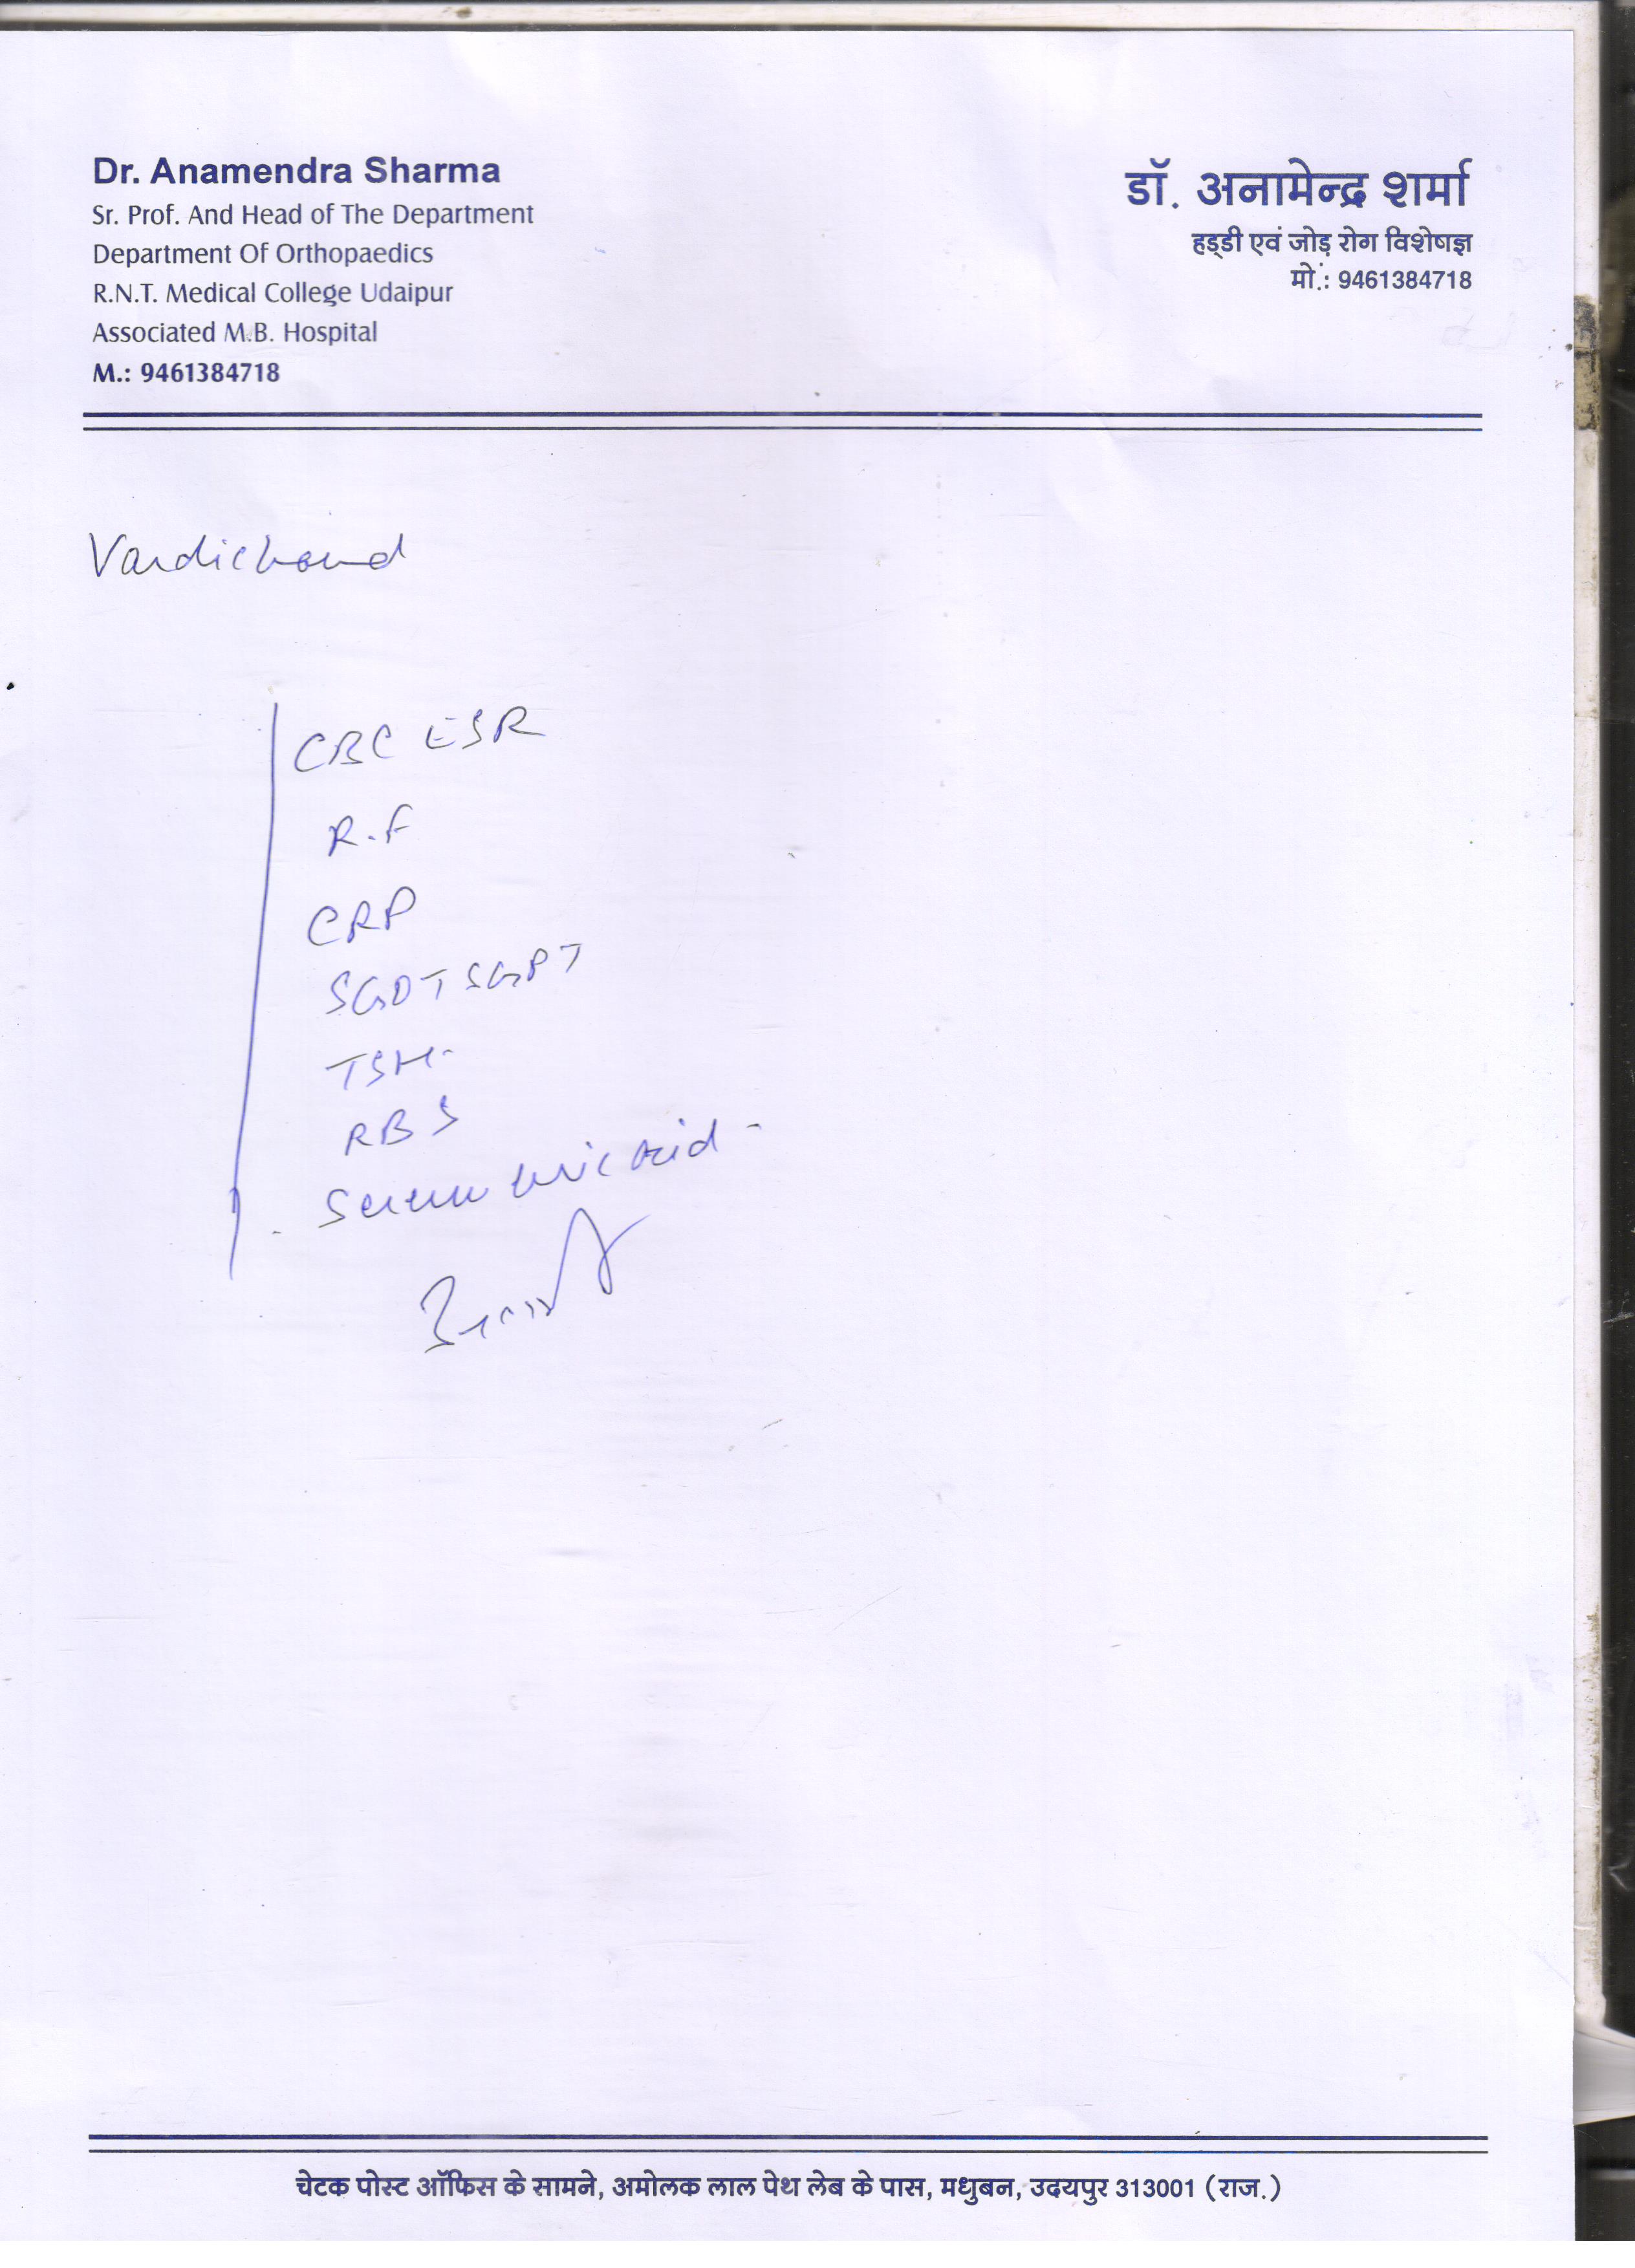 Dr. Anamendra Sharma
Sr. Prof. And Head of The Department
Department Of Orthopaedics
R.N.T. Medical College Udaipur
Associated M.B. Hospital
M.: 9461384718
डॉ. अनामेन्द्र शर्मा
हड्डी एवं जोड़ रोग विशेषज्ञ
मो.: 9461384718
Vardichand
CBC ESR
R.F
CRP
SGOT SGPT
TSH
RBS
Serum uric acid
चेटक पोस्ट ऑफिस के सामने, अमोलक लाल पेथ लेब के पास, मधुबन, उदयपुर 313001 (राज.)